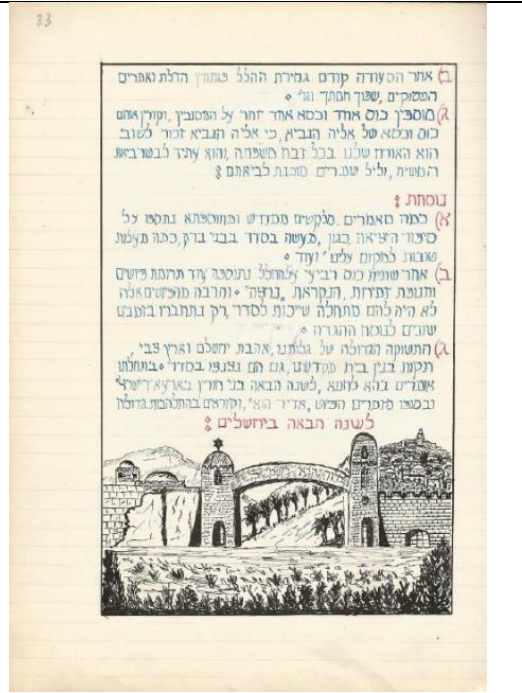 83
ב) אחר הסעודה קודם גמירת ההלל פותחין הדלת ואמרים
הפסוקים "שפוך חמתך וגו'.
ג) מוסיפין כוס אחד וכסא אחד יותר על המסובין, וקורין אותם
כוס וכסא של אליהו הנביא, כי אליה הנביא זכור לטוב
הוא האורח שלנו בכל זבח משפחה, והוא עתיד לבשר ביאת
המשיח, וליל שמרים מוכנת לביאתם:
נוסחת:
א) כמה מאמרים מלקטים ממדרש ומתוספתא נתספו על
סיפור היציאה, כגון "מעשה בסדר בבני ברק, כמה מעלות
טובות למקום עלינו" ועוד.
ב) אחר שתית כוס רביעי נתוספה עוד תרומת פיוטים
וזמירות, הנקראת "נרצה". והרבה מהפיוטים אלה
לא היה להם מתחלה שייכות לסדר, רק נתחברו בזמנים
שונים לנוסח ההגדה.
ג) התשוקה הגדולה של גלותנו, אהבת ירושלם וארץ צבי,
תקות בנין בית מקדשנו, גם הם נצטפו בסדר. בתחלתו
אומרים בהא לחמא "לשנה הבאה בני חורין בארעא דישראל"
ובסופו מזמרים הפיוט "אדיר הוא", וקוראים בהתלהבות גדולה
לשנה הבאה בירושלים: